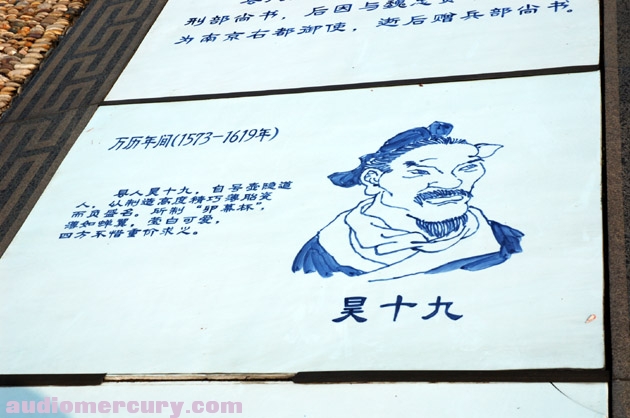 刑部尚书，后因与魏忠
为南京右都御使，逝后赠兵部尚书。
万历年间(1573—1619年)
人昊十九，自号壶隐道
人，以制造高度精巧薄胎瓷
而负盛名。所制“卵幕杯”，
薄如蝉翼，莹白可爱，
四方不惜重价求之。
昊十九
audiomercury.com